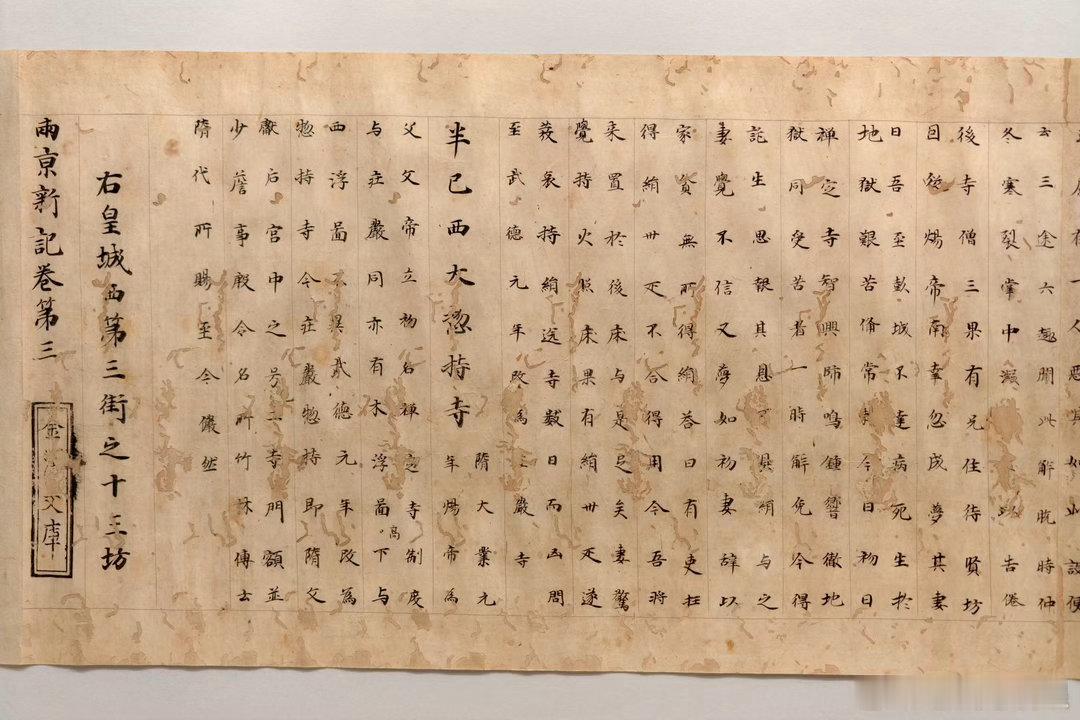 有一人惡其如此設便
云三途六趣聞此解脫時仲
冬寒裂掌中凝以告倦
後寺僧三果有兄住待賢坊
因從煬帝南幸忽成夢其妻
日吾至彭城不達病死生於
地獄艱苦俻常今日初日
禅定寺智興師鳴鍾響徹地
獄同受苦者一時解免今得
託生思報其恩可具絹与之
妻覺不信又夢如初妻辞以
家貧無所得絹答曰有吏枉
得絹卅疋不合得用今吾将
来置於後床与是足矣妻驚
覺持火照床果有絹卅疋遂
發哀持絹送寺數日而凶問
至武德元年改為嚴寺
半已西大惣持寺 隋大業元
年煬帝為
父文帝立初名禅定寺制度
与庄嚴同亦有木浮啚高下与
西浮啚不異武德元年改為
惣持寺今庄嚴惣持即隋文
獻后宮中之号二寺門額並
少詹事殷令名所竹林傳云
隋代所賜至今儼然
右皇城西第三街之十三坊
兩京新記卷第三
金澤文庫